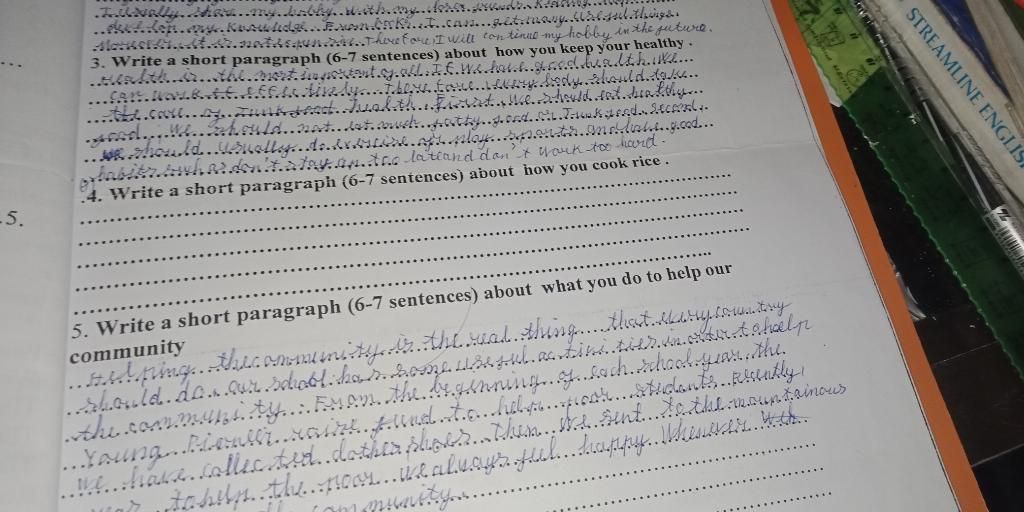 I usually share my hobby with my close friends. Reading
develop my knowledge. From books, I can get many useful things.
Moreover, it is not expensive. Therefore, I will continue my hobby in the future.
3. Write a short paragraph (6-7 sentences) about how you keep your healthy .
Health is the most important of all. If we have good health, we
can work effectively. Therefore, everybody should take
the care of health. First, we should eat healthy
food; we should not eat much fatty food or Junk food. Second,
we should usually do exercise or play sports and have good
habits such as don't stay up too late and don't work too hard.
.4. Write a short paragraph (6-7 sentences) about how you cook rice .
5.
5. Write a short paragraph (6-7 sentences) about what you do to help our
community
Helping the community is the real thing that every country
should do. Our school has some useful activities in order to help
the community. From the beginning of each school year, the
Young Pioneer raise fund to help poor students. Recently,
we have collected clothes, shoes. Then we sent to the mountainous
to help the poor. We always feel happy. Whenever
community.
STREAMLINE ENGLISH